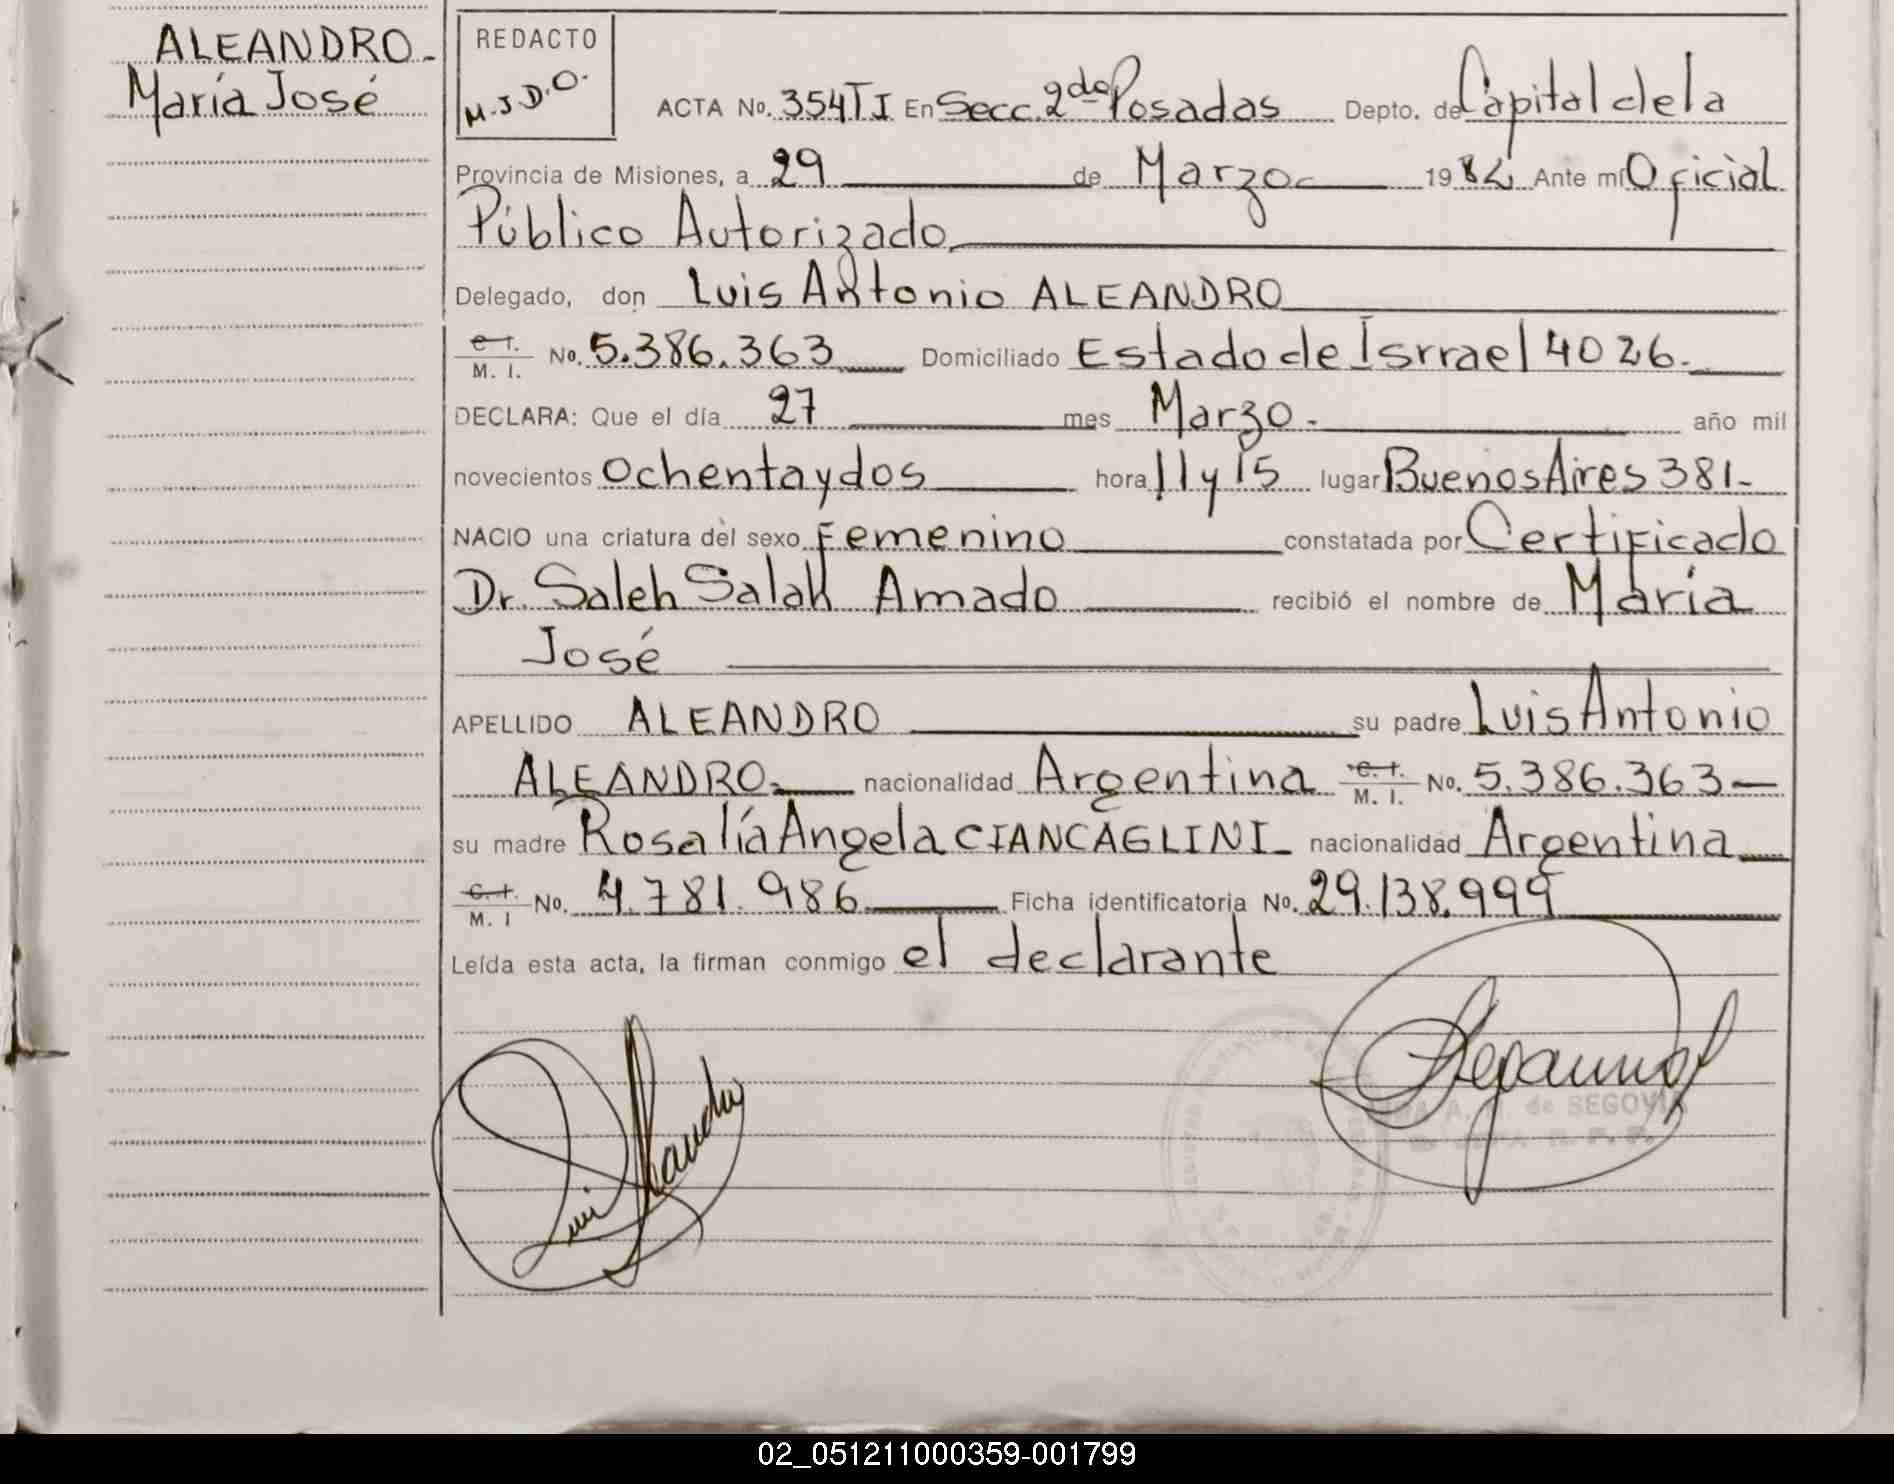 ALEANDRO-
María José
REDACTO
M.J.D.O.
ACTA No. 354TI En Secc. 2da Posadas Depto. de Capital de la
Provincia de Misiones, a 29 de Marzo 1982 Ante mí Oficial
Público Autorizado
Delegado, don Luis Antonio ALEANDRO
C. I. M. I. No. 5.386.363 Domiciliado Estado de Isrrael 4026.
DECLARA: Que el día 27 mes Marzo - año mil
novecientos ochenta y dos hora 11 y 15 lugar Buenos Aires 381-
NACIO una criatura del sexo Femenino constatada por Certificado
Dr. Saleh Salah Amado recibió el nombre de María
José
APELLIDO ALEANDRO su padre Luis Antonio
ALEANDRO nacionalidad Argentina C. I. M. I. No. 5.386.363-
su madre Rosalía Angela CIANCAGLINI nacionalidad Argentina
C. I. M. I No. 4.781.986 Ficha identificatoria No. 29.138.999
Leída esta acta, la firman conmigo el declarante
Luis Aleandro
de SEGOVIA
02_051211000359-001799